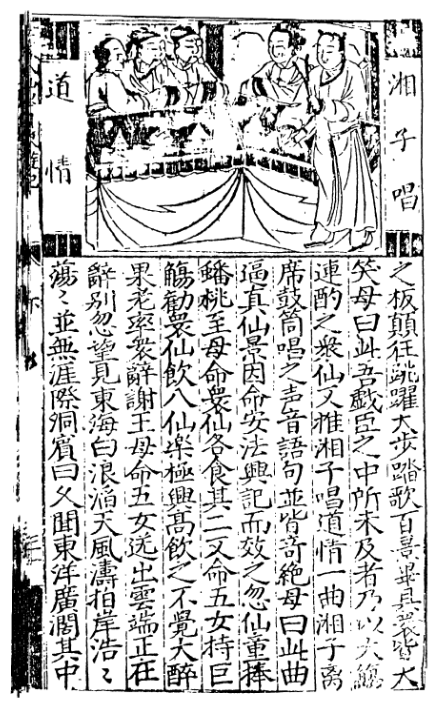 湘子唱
道情
之板顛狂跳躍大步踏歌百景畢具衆皆大
笑母曰此吾戲臣之中所未及者乃以大觴
連酌之衆仙又推湘子唱道情一曲湘子离
席鼓筒唱之声音語句並皆奇絶母曰此曲
逼真仙景因命安法興記而效之忽仙童捧
蟠桃至母命衆仙各食其二又命五女持巨
觴勸衆仙飲八仙楽極興髙飲之不覺大醉
果老率衆辭謝王母命五女送出雲端正在
辭别忽望見東海白浪滔天風濤拍岸浩〻
蕩〻並無涯際洞賓曰久聞東洋廣濶其中